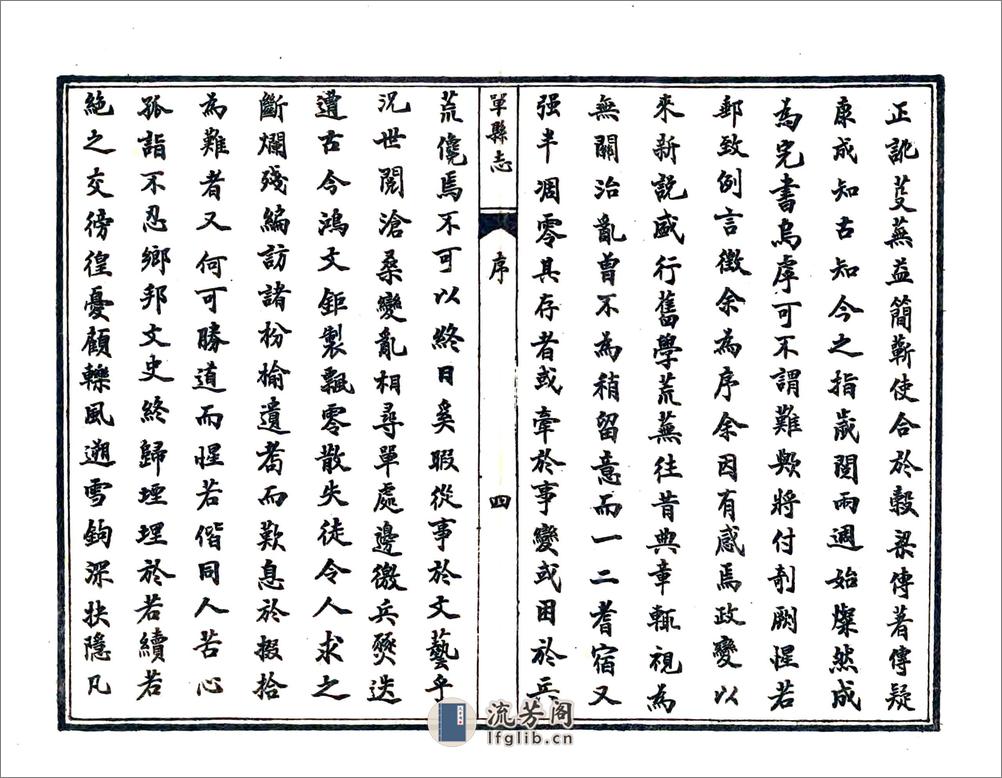 正訛芟蕪益簡蘄使合於穀梁傳著傳疑
康成知古知今之指歲閱兩週始燦然成
為完書烏虖可不謂難歟將付剞劂惺若
郵致例言徵余為序余因有感焉政變以
來新說盛行舊學荒蕪往昔典章輒視為
無關治亂曾不為稍留意而一二耆宿又
强半凋零其存者或牽於事變或困於兵
單縣志
序
四
荒儳焉不可以終日奚暇從事於文藝乎
況世閱滄桑變亂相尋單處邊徼兵燹迭
遭古今鴻文鉅製飄零散失徒令人求之
斷爛殘編訪諸枌榆遺耇而歎息於掇拾
為難者又何可勝道而惺若偕同人苦心
孤詣不忍鄉邦文史終歸堙埋於若續若
絕之交徬徨憂顧轢風遡雪鉤深抉隱凡
流芳阁
lfglib.cn